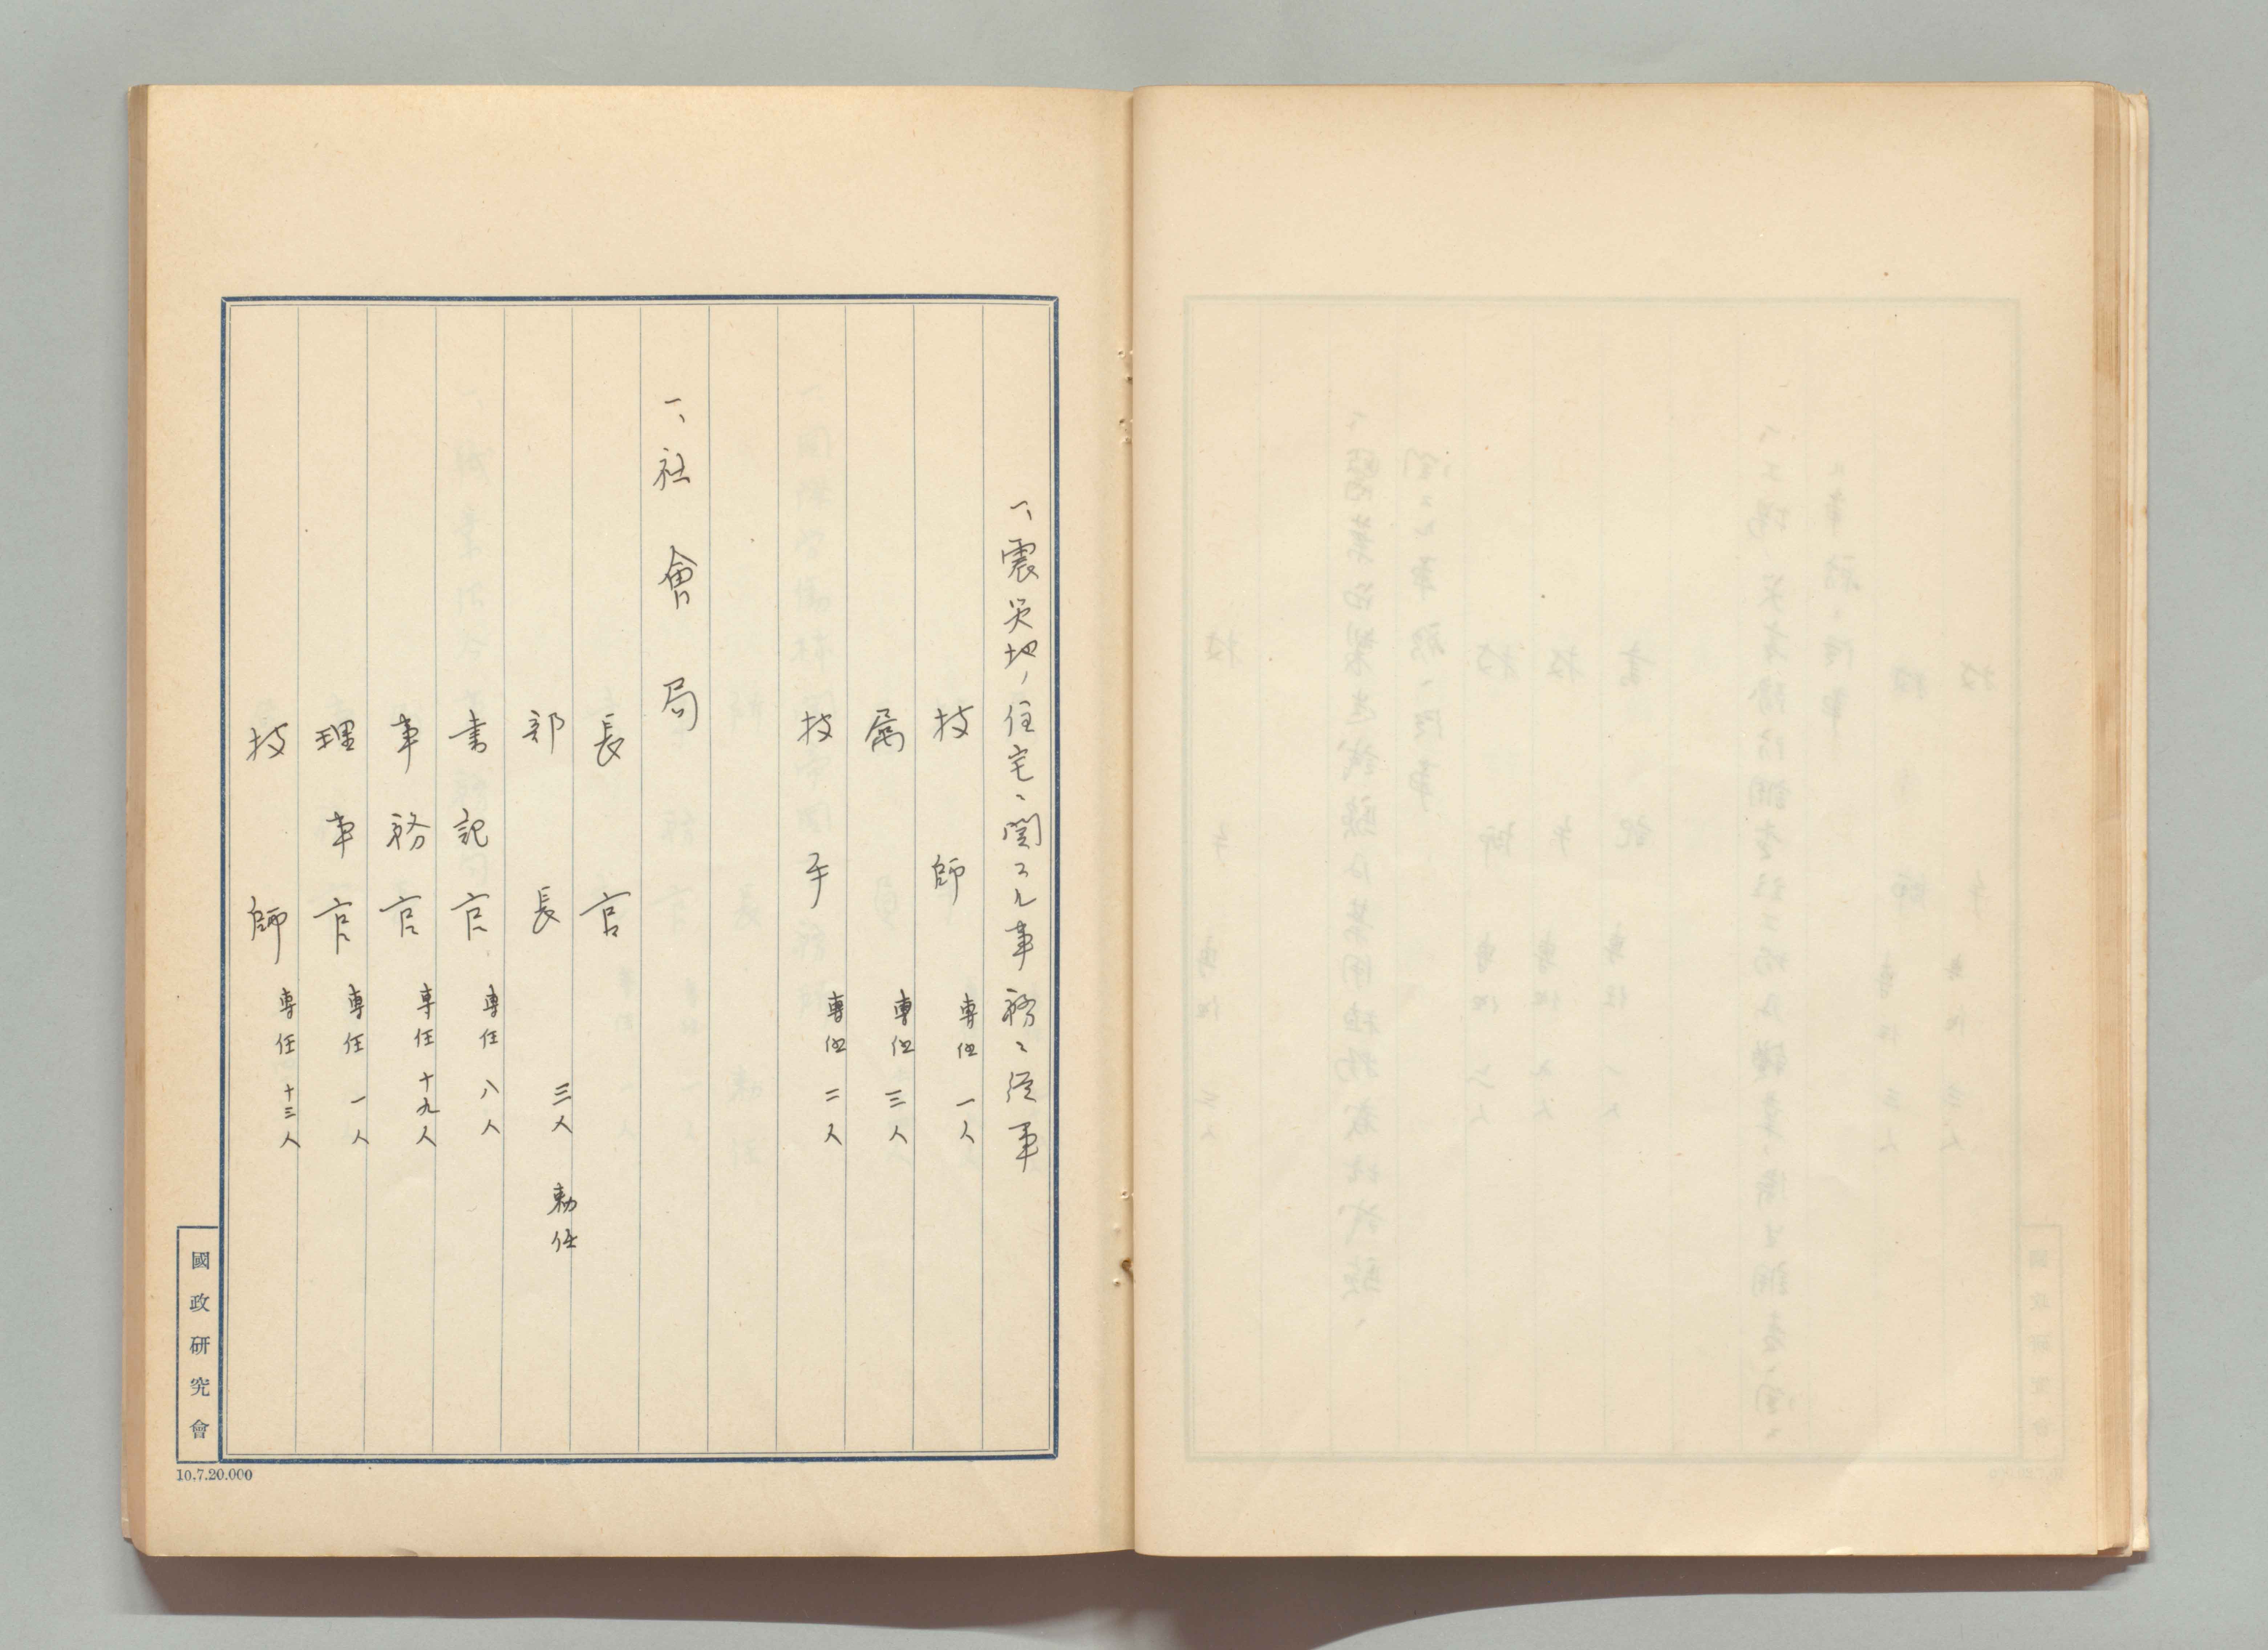 一、震災地ノ住宅ニ関スル事務ニ従事
技師 専任 一人
属 専任 三人
技手 専任 二人
一、社會局
長官
部長 三人 勅任
書記官 専任 八人
事務官 専任 十九人
理事官 専任 一人
技師 専任 十三人
國政研究會
10.7.20.000